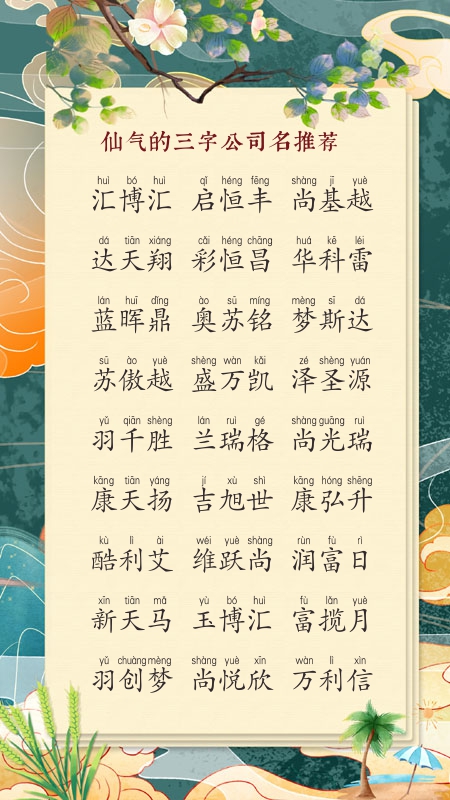 仙气的三字公司名推荐
huì bó huì qǐ héng fēng shàng jī yuè
汇博汇 启恒丰 尚基越
dá tiān xiáng cǎi héng chāng huá kē léi
达天翔 彩恒昌 华科雷
lán huī dǐng ào sū míng mèng sī dá
蓝晖鼎 奥苏铭 梦斯达
sū ào yuè shèng wàn kǎi zé shèng yuán
苏傲越 盛万凯 泽圣源
yǔ qiān shèng lán ruì gé shàng guāng ruì
羽千胜 兰瑞格 尚光瑞
kāng tiān yáng jí xù shì kāng hóng shēng
康天扬 吉旭世 康弘升
kù lì ài wéi yuè shàng rùn fù rì
酷利艾 维跃尚 润富日
xīn tiān mǎ yù bó huì fù lǎn yuè
新天马 玉博汇 富揽月
yǔ chuàng mèng shàng yuè xīn wàn lì xìn
羽创梦 尚悦欣 万利信